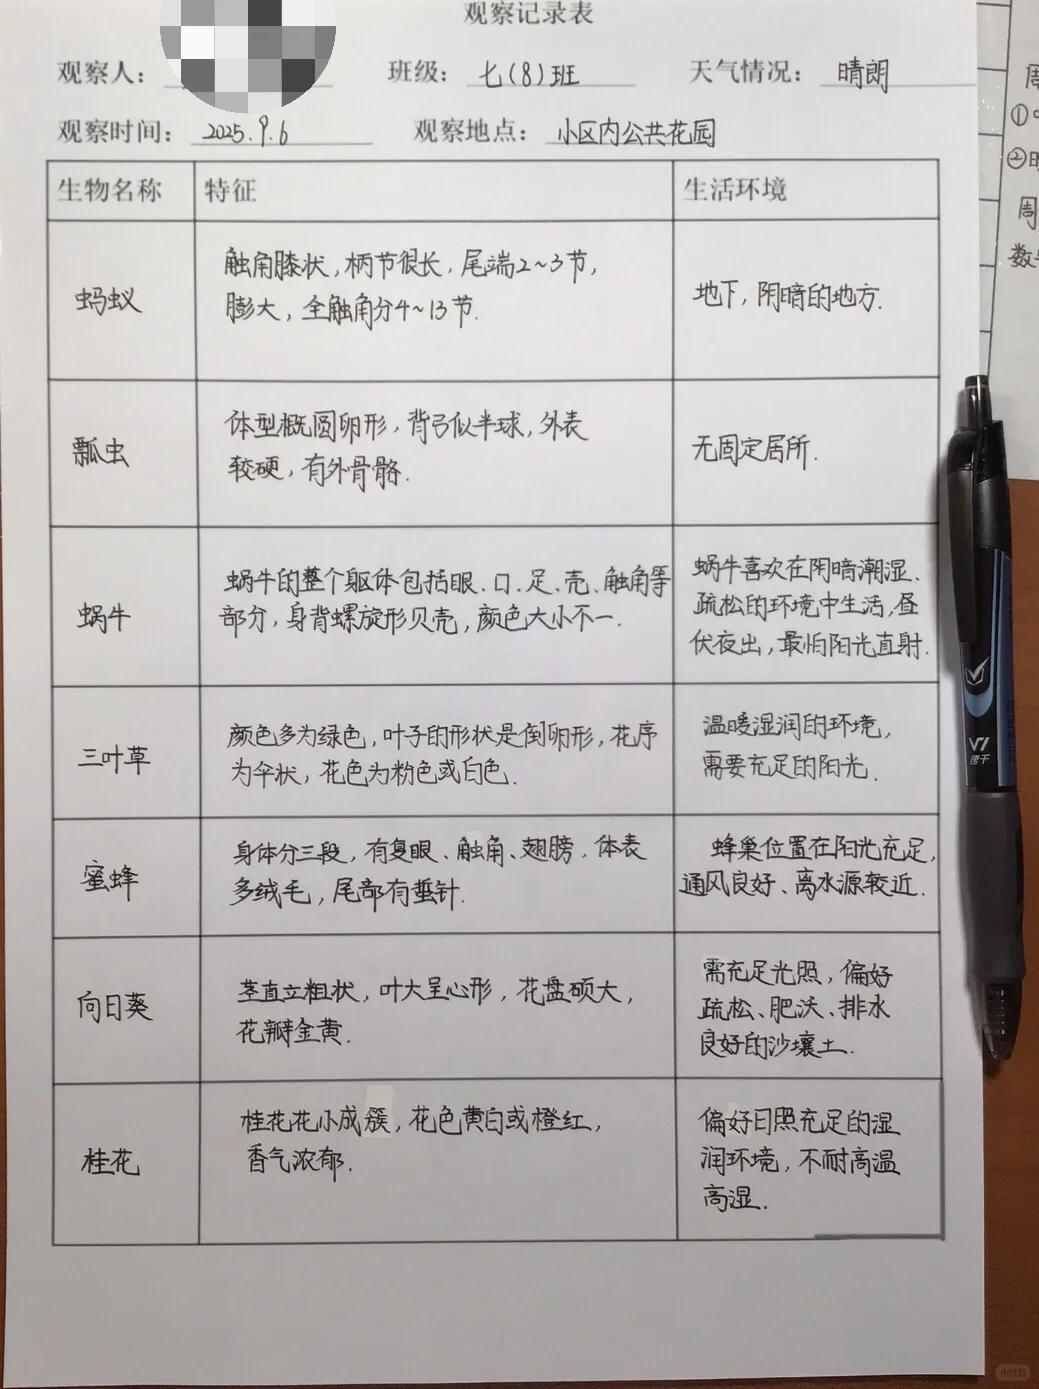 观察记录表
观察人：
班级：七(8)班
天气情况：晴朗
观察时间：2025.9.6
观察地点：小区内公共花园
生物名称
特征
生活环境
蚂蚁
触角膝状，柄节很长，尾端2~3节，
膨大，全触角分4~13节.
地下，阴暗的地方.
瓢虫
体型概圆卵形，背弓似半球，外表
较硬，有外骨骼.
无固定居所.
蜗牛
蜗牛的整个躯体包括眼、口、足、壳、触角等
部分，身背螺旋形贝壳，颜色大小不一.
蜗牛喜欢在阴暗潮湿、
疏松的环境中生活，昼
伏夜出，最怕阳光直射.
三叶草
颜色多为绿色，叶子的形状是倒卵形，花序
为伞状，花色为粉色或白色.
温暖湿润的环境，
需要充足的阳光.
蜜蜂
身体分三段，有复眼、触角、翅膀，体表
多绒毛，尾部有螫针.
蜂巢位置在阳光充足，
通风良好、离水源较近.
向日葵
茎直立粗状，叶大呈心形，花盘硕大，
花瓣金黄.
需充足光照，偏好
疏松、肥沃、排水
良好的沙壤土.
桂花
桂花花小成簇，花色黄白或橙红，
香气浓郁.
偏好日照充足的湿
润环境，不耐高温
高湿.
周
①
②
周
数
V1
速干
小红书